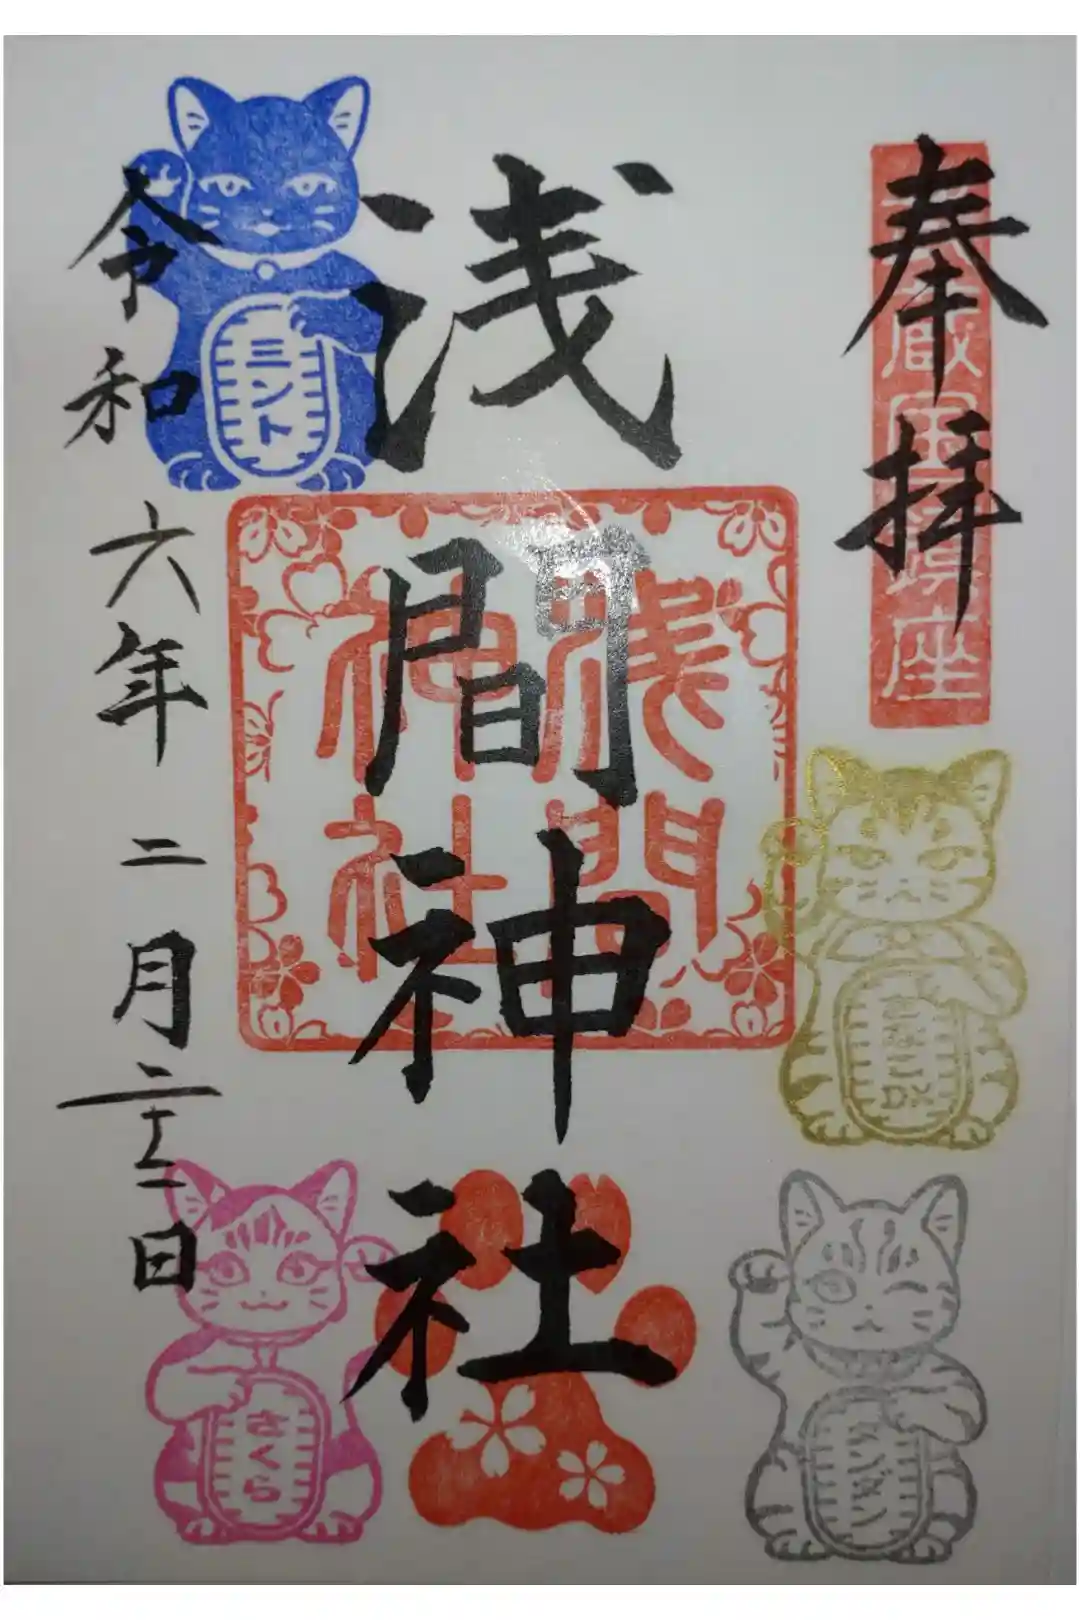 奉拝
武蔵国鎮座
浅間神社
浅間
神社
令和六年二月二十二日
ミント
DX
さくら